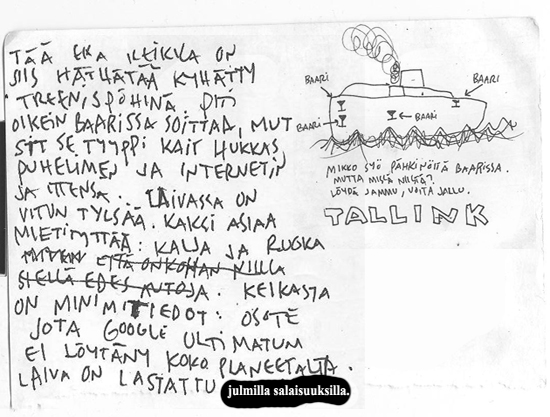 TÄÄ EKA KEIKKA ON
SIIS HÄTHÄTÄÄ KYHÄTTY
TREENISPÖHINÄ. PITI
OIKEIN BAARISSA SOITTAA, MUT
SIT SE TYYPPI KAIT HUKKAS
PUHELIMEN JA INTERNETIN
JA ITTENSA. LAIVASSA ON
VITUN TYLSÄÄ. KAKSI ASIAA
MIETITYTTÄÄ: KALJA JA RUOKA
ETTÄ ONKOHAN NIILLÄ
SIELLÄ EDES AUTOJA. KEIKASTA
ON MINIMITIEDOT: OSOTE
JOTA GOOGLE ULTIMATUM
EI LÖYTÄNY KOKO PLANEETALTA.
LAIVA ON LASTATTU julmilla salaisuuksilla.
BAARI
BAARI
BAARI
BAARI
MIKKO SYÖ PÄHKINÖITÄ BAARISSA.
MUTTA MILLÄ NIISTÄ?
LÖYDÄ JAMMU, VOITA JALLU.
TALLINK